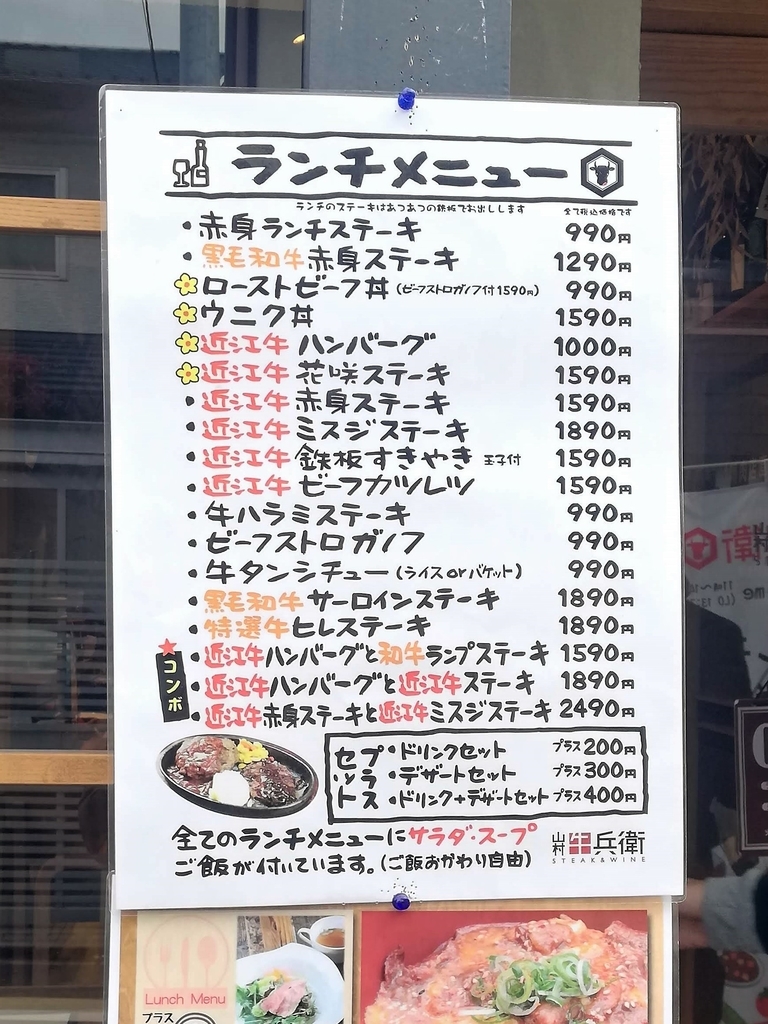 ランチメニュー
ランチのステーキはあつあつの鉄板でお出しします 全て税込価格です
・赤身ランチステーキ 990円
・黒毛和牛赤身ステーキ 1290円
ローストビーフ丼(ビーフストロガノフ付1590円) 990円
ウニク丼 1590円
近江牛ハンバーグ 1000円
近江牛花咲ステーキ 1590円
・近江牛赤身ステーキ 1590円
・近江牛ミスジステーキ 1890円
・近江牛鉄板すきやき 玉子付 1590円
・近江牛ビーフカツレツ 1590円
・牛ハラミステーキ 990円
・ビーフストロガノフ 990円
・牛タンシチュー(ライスorバケット) 990円
・黒毛和牛サーロインステーキ 1890円
・特選牛ヒレステーキ 1890円
コンボ
・近江牛ハンバーグと和牛ランプステーキ 1590円
・近江牛ハンバーグと近江牛ステーキ 1890円
・近江牛赤身ステーキと近江牛ミスジステーキ 2490円
プラス
セット
・ドリンクセット プラス200円
・デザートセット プラス300円
・ドリンク+デザートセット プラス400円
全てのランチメニューにサラダ・スープ
ご飯が付いています。(ご飯おかわり自由)
山村牛兵衛
STEAK&WINE
Lunch Menu
プラス
衛